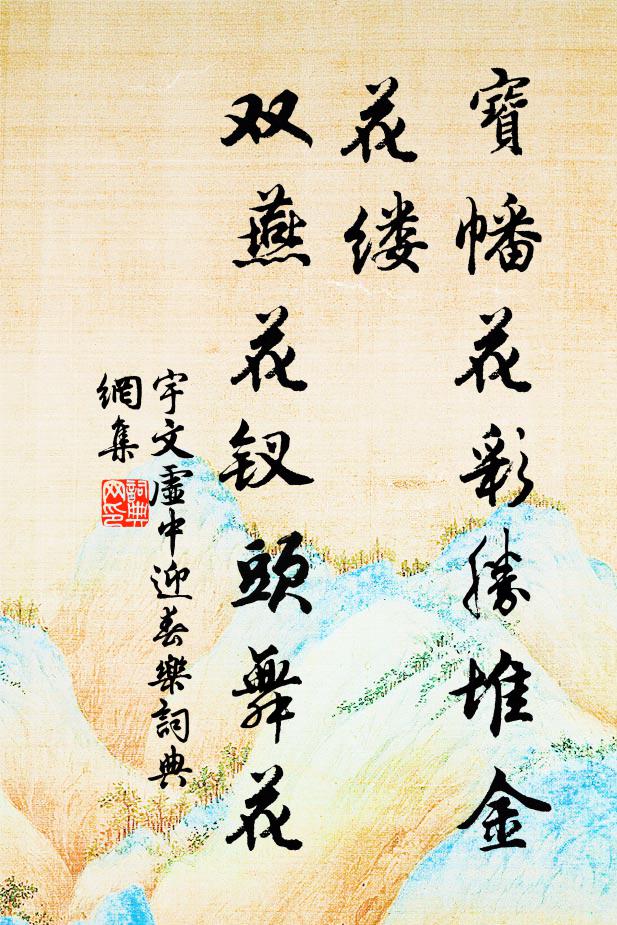 寶幡花彩勝堆金
花缕
双燕花钗頭舞花
宇文虛中迎春樂詞典
網集
詞典
网印